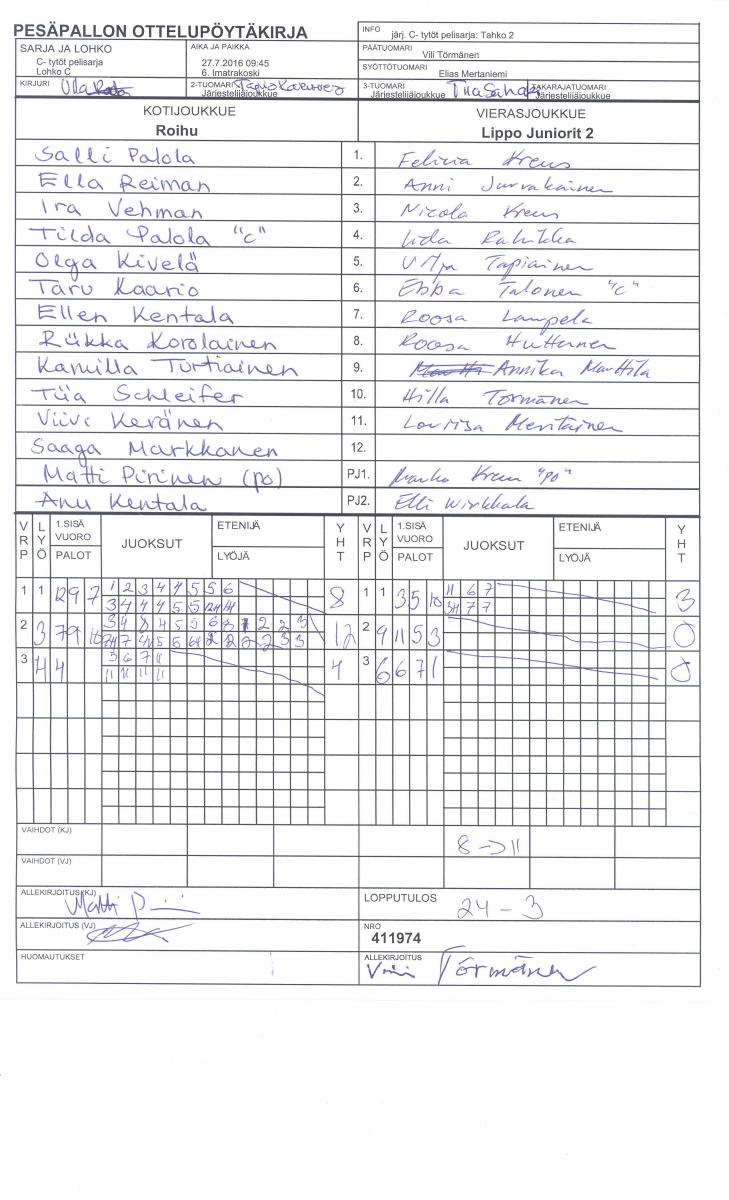 PESÄPALLON OTTELUPÖYTÄKIRJA
INFO järj. C- tytöt pelisarja: Tahko 2
SARJA JA LOHKO
C- tytöt pelisarja
Lohko C
AIKA JA PAIKKA
27.7.2016 09:45
6. Imatrakoski
PÄÄTUOMARI
Vili Törmänen
SYÖTTÖTUOMARI
Elias Mertaniemi
KIRJURI
2-TUOMARI
Järjestelijäjoukkue
3-TUOMARI
Järjestelijäjoukkue
TAKARAJATUOMARI
Järjestelijäjoukkue
KOTIJOUKKUE
Roihu
VIERASJOUKKUE
Lippo Juniorit 2
Salli Palola 1. Felicia Kreus
Ella Reiman 2. Anni Jurvakainen
Ira Vehman 3. Nicola Kreus
Tilda Palola "c" 4. Iida Rahikka
Olga Kivelä 5. Vilja Tapiainen
Taru Kaario 6. Ebba Talonen "c"
Ellen Kentala 7. Roosa Lampela
Riikka Korolainen 8. Roosa Huttunen
Kamilla Turtiainen 9. Annika Marttila
Tiia Schleifer 10. Hilla Törmänen
Viivi Keränen 11. Lovisa Meritainen
Saaga Markkanen 12.
Matti Pirinen (po) PJ1. Marko Kreus "po"
Anu Kentala PJ2. Elli Wirkkala
VRP LYÖ 1.SISÄ VUORO PALOT JUOKSUT ETENIJÄ LYÖJÄ YHT VRP LYÖ 1.SISÄ VUORO PALOT JUOKSUT ETENIJÄ LYÖJÄ YHT
1 1 12 9 7 1 2 3 4 4 5 5 6 8 1 1 3 5 10 11 6 7 3
3 4 4 4 5 5 7 7
2 3 7 9 10 12 2 9 11 5 3 0
3 4 4 3 6 7 11 4 3 6 6 7 1 0
11 11 11 11
VAIHDOT (KJ) 8 -> 11
VAIHDOT (VJ)
ALLEKIRJOITUS (KJ)
LOPPUTULOS 24 - 3
ALLEKIRJOITUS (VJ)
NRO
411974
HUOMAUTUKSET
ALLEKIRJOITUS
Vili Törmänen